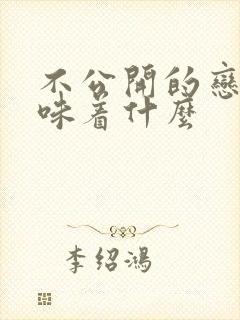 不公開的戀
味着什麼
李紹鴻